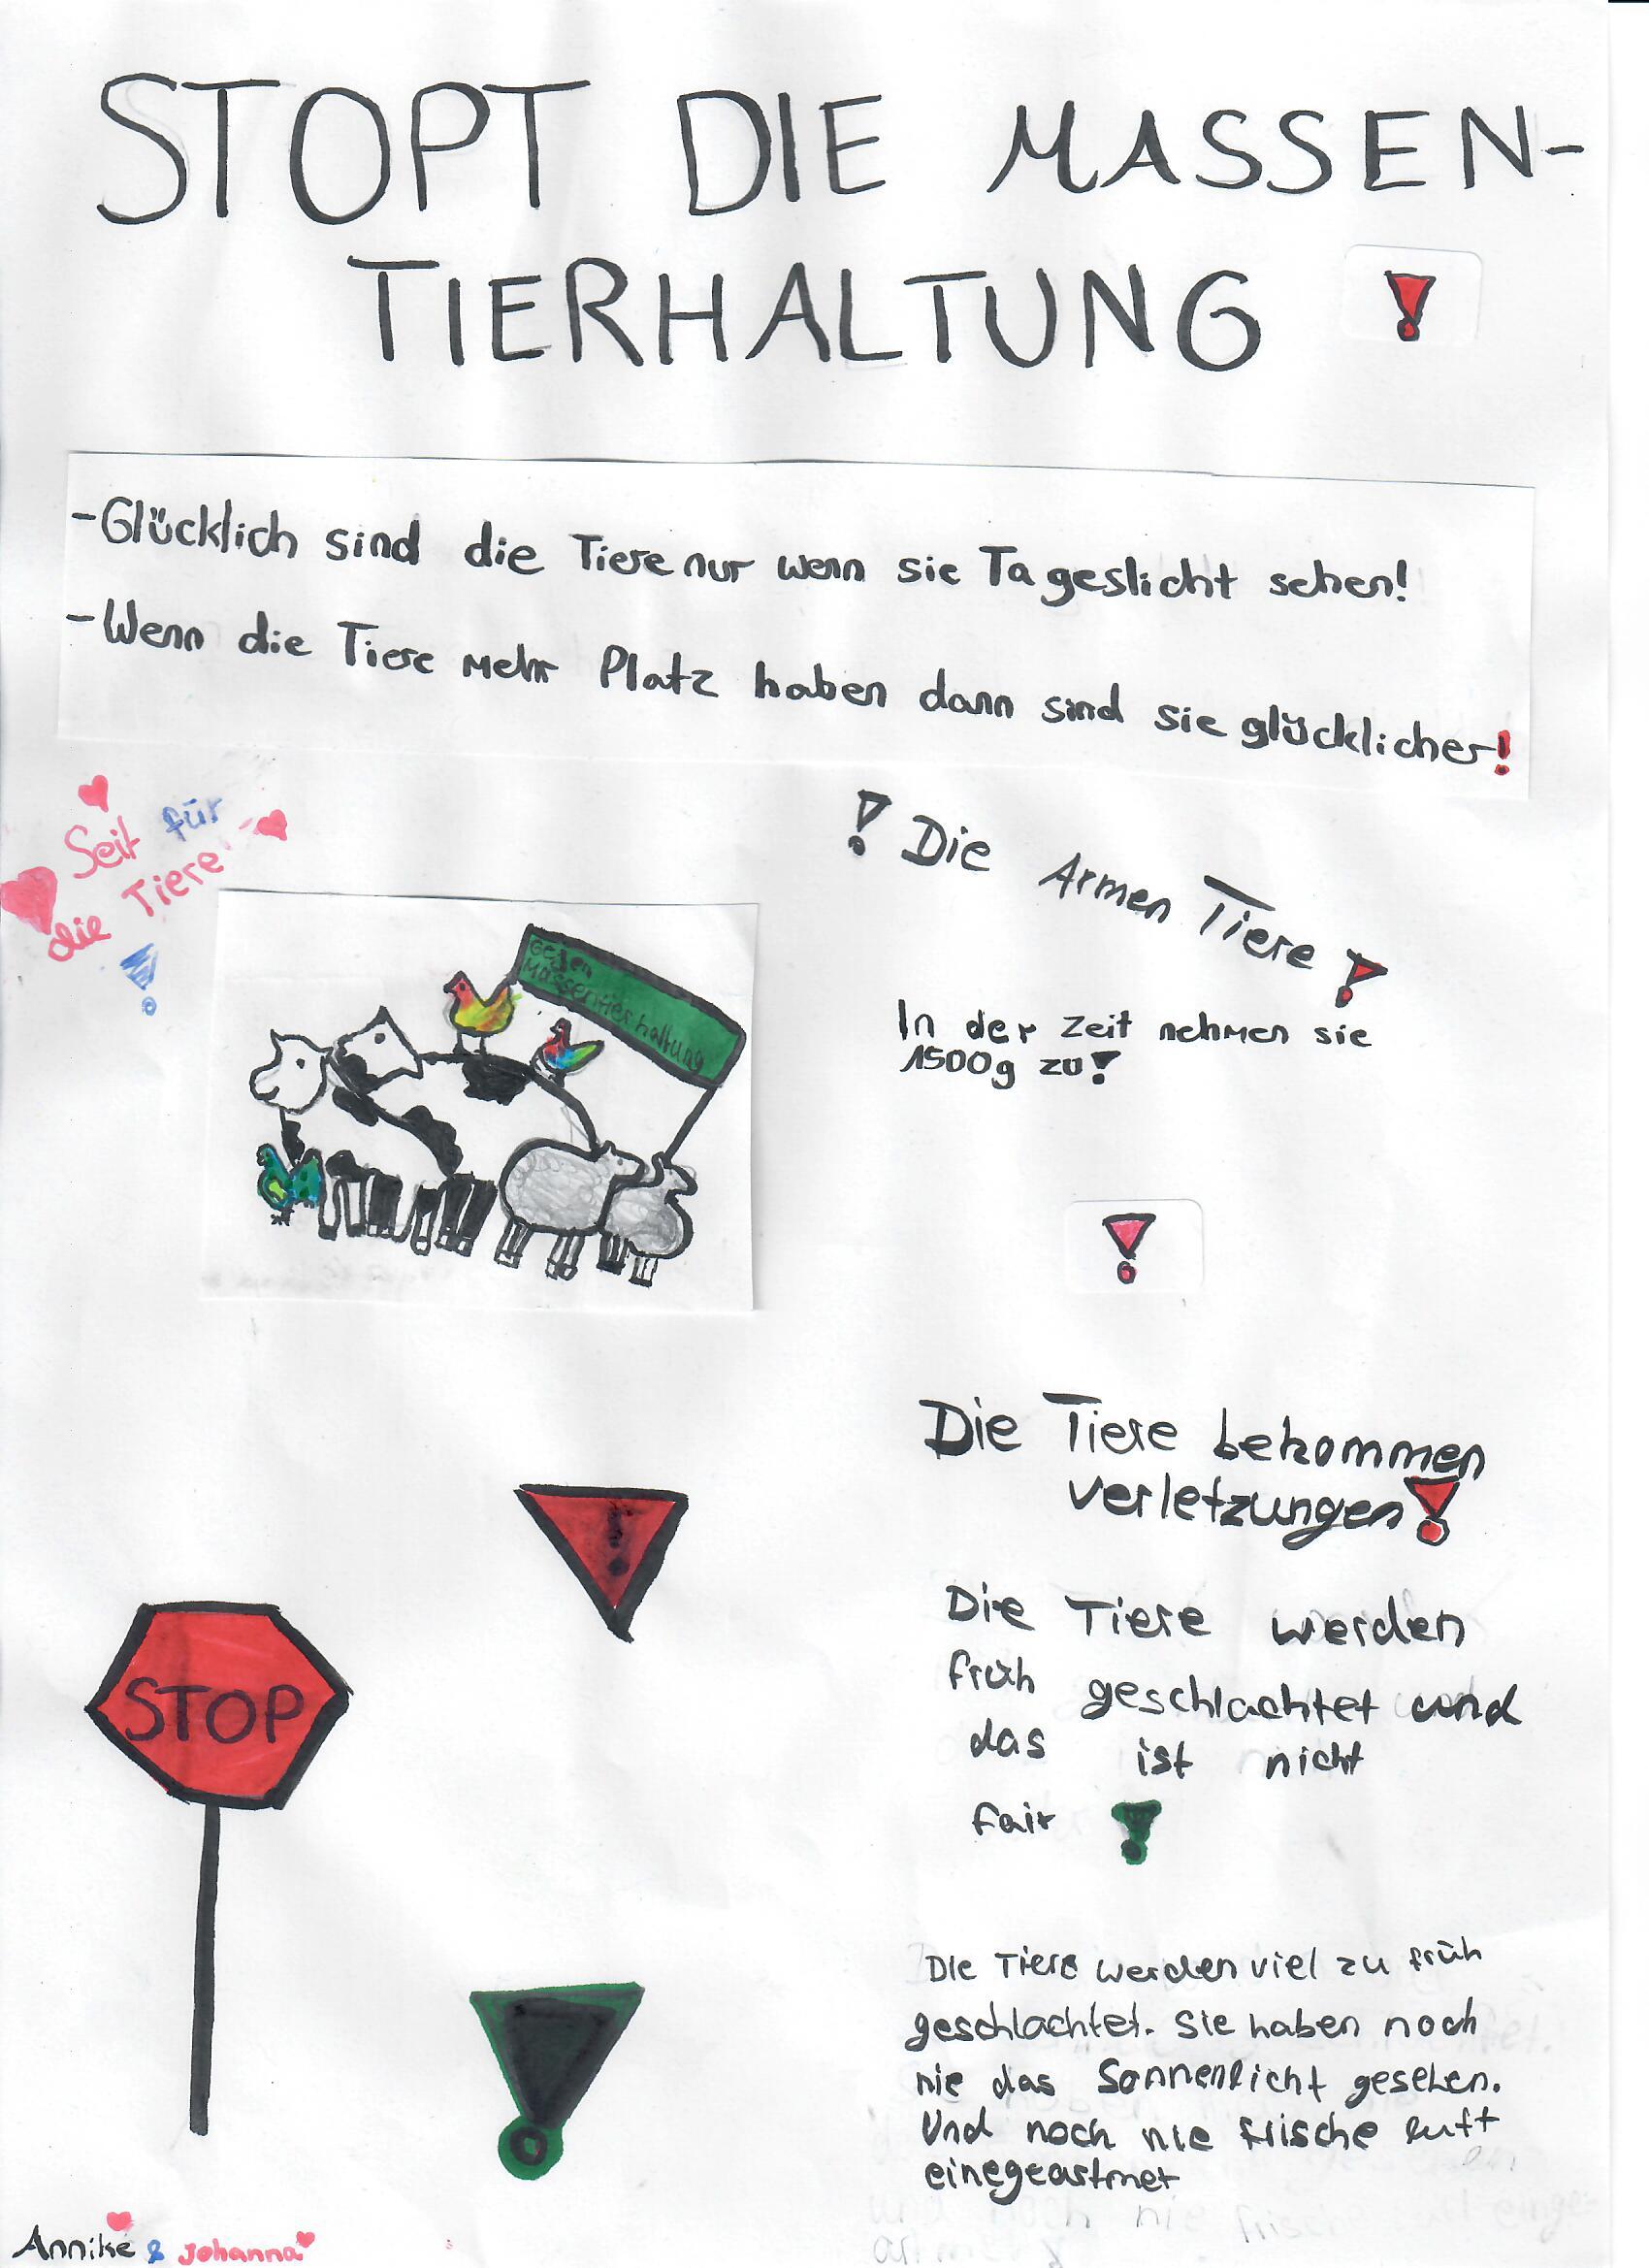 STOPT DIE MASSEN-
TIERHALTUNG !
-Glücklich sind die Tiere nur wenn sie Tageslicht sehen!
-Wenn die Tiere mehr Platz haben dann sind sie glücklicher!
Seit für
die Tiere
!
! Die Armen Tiere !
In der Zeit nehmen sie
1500g zu!
Gegen
Massentierhaltung
!
Die Tiere bekommen
verletzungen!
!
Die Tiere werden
früh geschlachtet und
das ist nicht
fair !
STOP
!
Die Tiere werden viel zu früh
geschlachtet. Sie haben noch
nie das Sonnenlicht gesehen.
Und noch nie frische luft
einegeastmet
Annike & Johanna